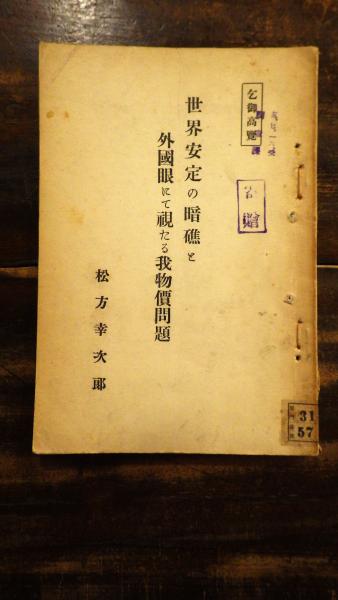 乞御高覽
世界安定の暗礁と
外國眼にて視たる我物價問題
松方幸次郎
寄贈
31
57